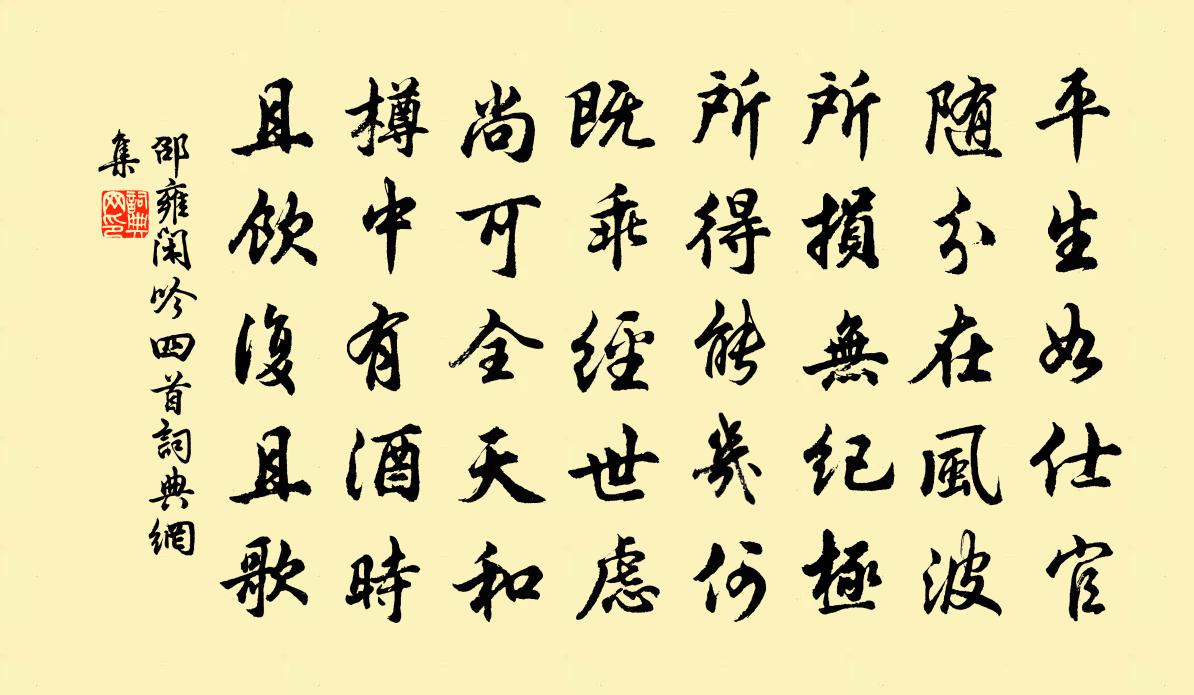 平生如仕官
随分在風波
所損無紀極
所得能幾何
既乖經世慮
尚可全天和
樽中有酒時
且飲復且歌
邵雍閑吟四首詞典網
集
詞典
网印